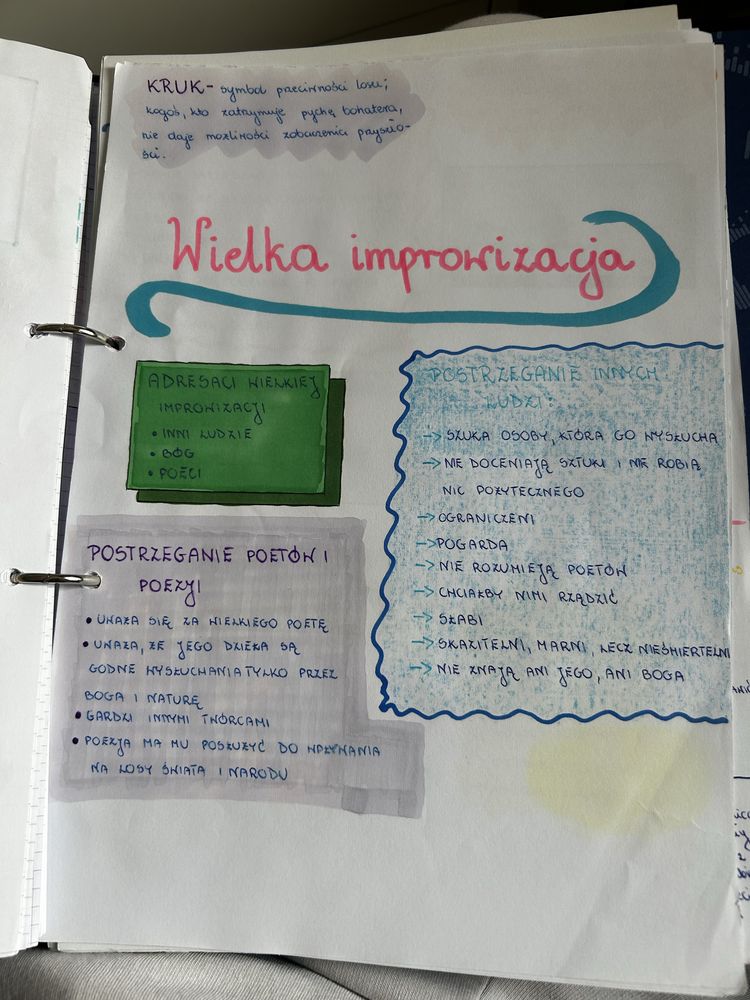 KRUK- symbol przeciwności losu;
kogoś, kto zatrzymuje pychę bohatera,
nie daje możliwości zobaczenia przyszło-
ści.
Wielka improwizacja
ADRESACI WIELKIEJ
IMPROWIZACJI
• INNI LUDZIE
• BÓG
• POECI
POSTRZEGANIE POETÓW I
POEZJI
• UWAŻA SIĘ ZA WIELKIEGO POETĘ
• UWAŻA, ŻE JEGO DZIEŁA SĄ
GODNE WYSŁUCHANIA TYLKO PRZEZ
BOGA I NATURĘ
• GARDZI INNYMI TWÓRCAMI
• POEZJA MA MU POSŁUŻYĆ DO WPŁYWANIA
NA LOSY ŚWIATA I NARODU
POSTRZEGANIE INNYCH
LUDZI:
→ SZUKA OSOBY, KTÓRA GO WYSŁUCHA
→ NIE DOCENIAJĄ SZTUKI I NIE ROBIĄ
NIC POŻYTECZNEGO
→ OGRANICZENI
→ POGARDA
→ NIE ROZUMIEJĄ POETÓW
→ CHCIAŁBY NIMI RZĄDZIĆ
→ SŁABI
→ SKAZITELNI, MARNI, LECZ NIEŚMIERTELNI
→ NIE ZNAJĄ ANI JEGO, ANI BOGA